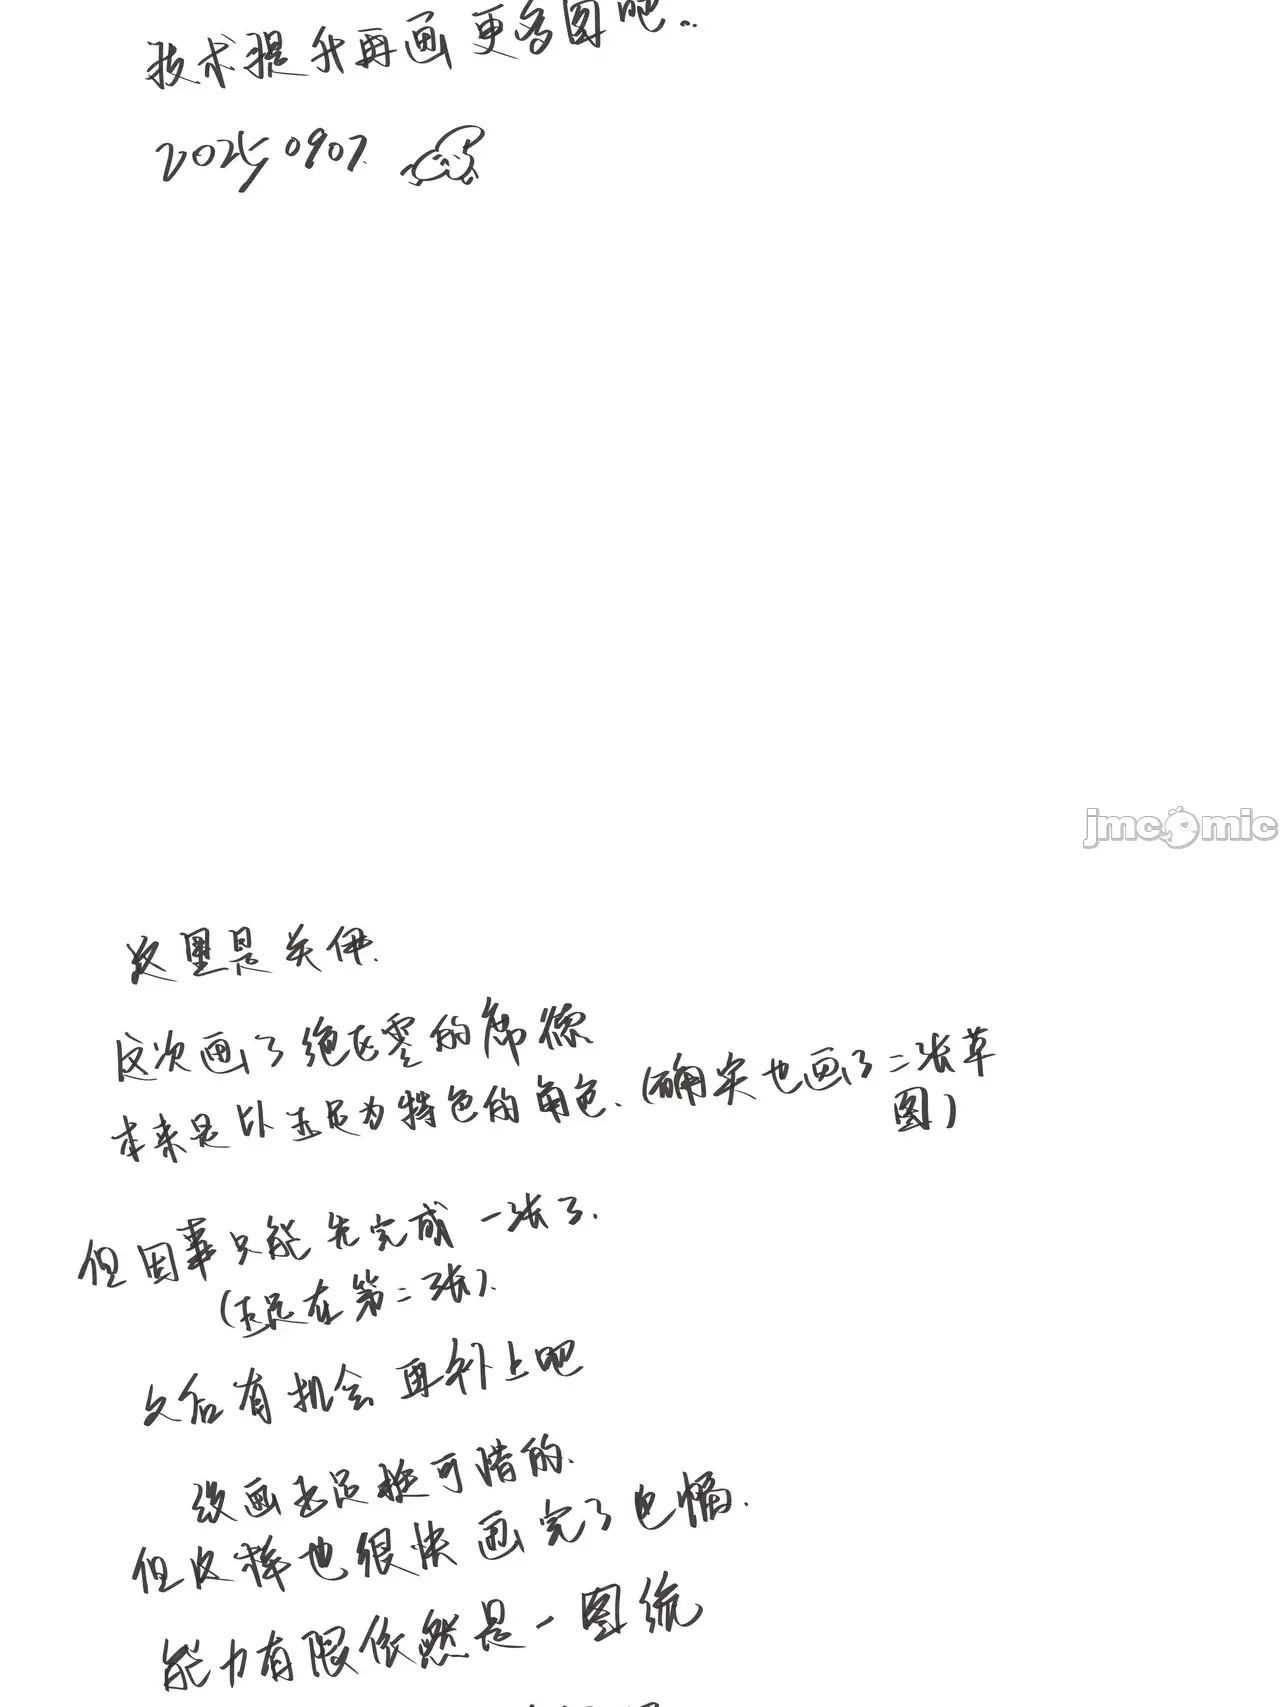 技术提升再画更多图吧..
20250907.
jmcomic
这里是关伊.
这次画了绝区零的席德
本来是以玉足为特色的角色.(确实也画了二张草
图)
但因事只能先完成一张了.
(玉足在第二张).
之后有机会再补上吧
没画玉足挺可惜的.
但这样也很快画完了色幅.
能力有限依然是一图流